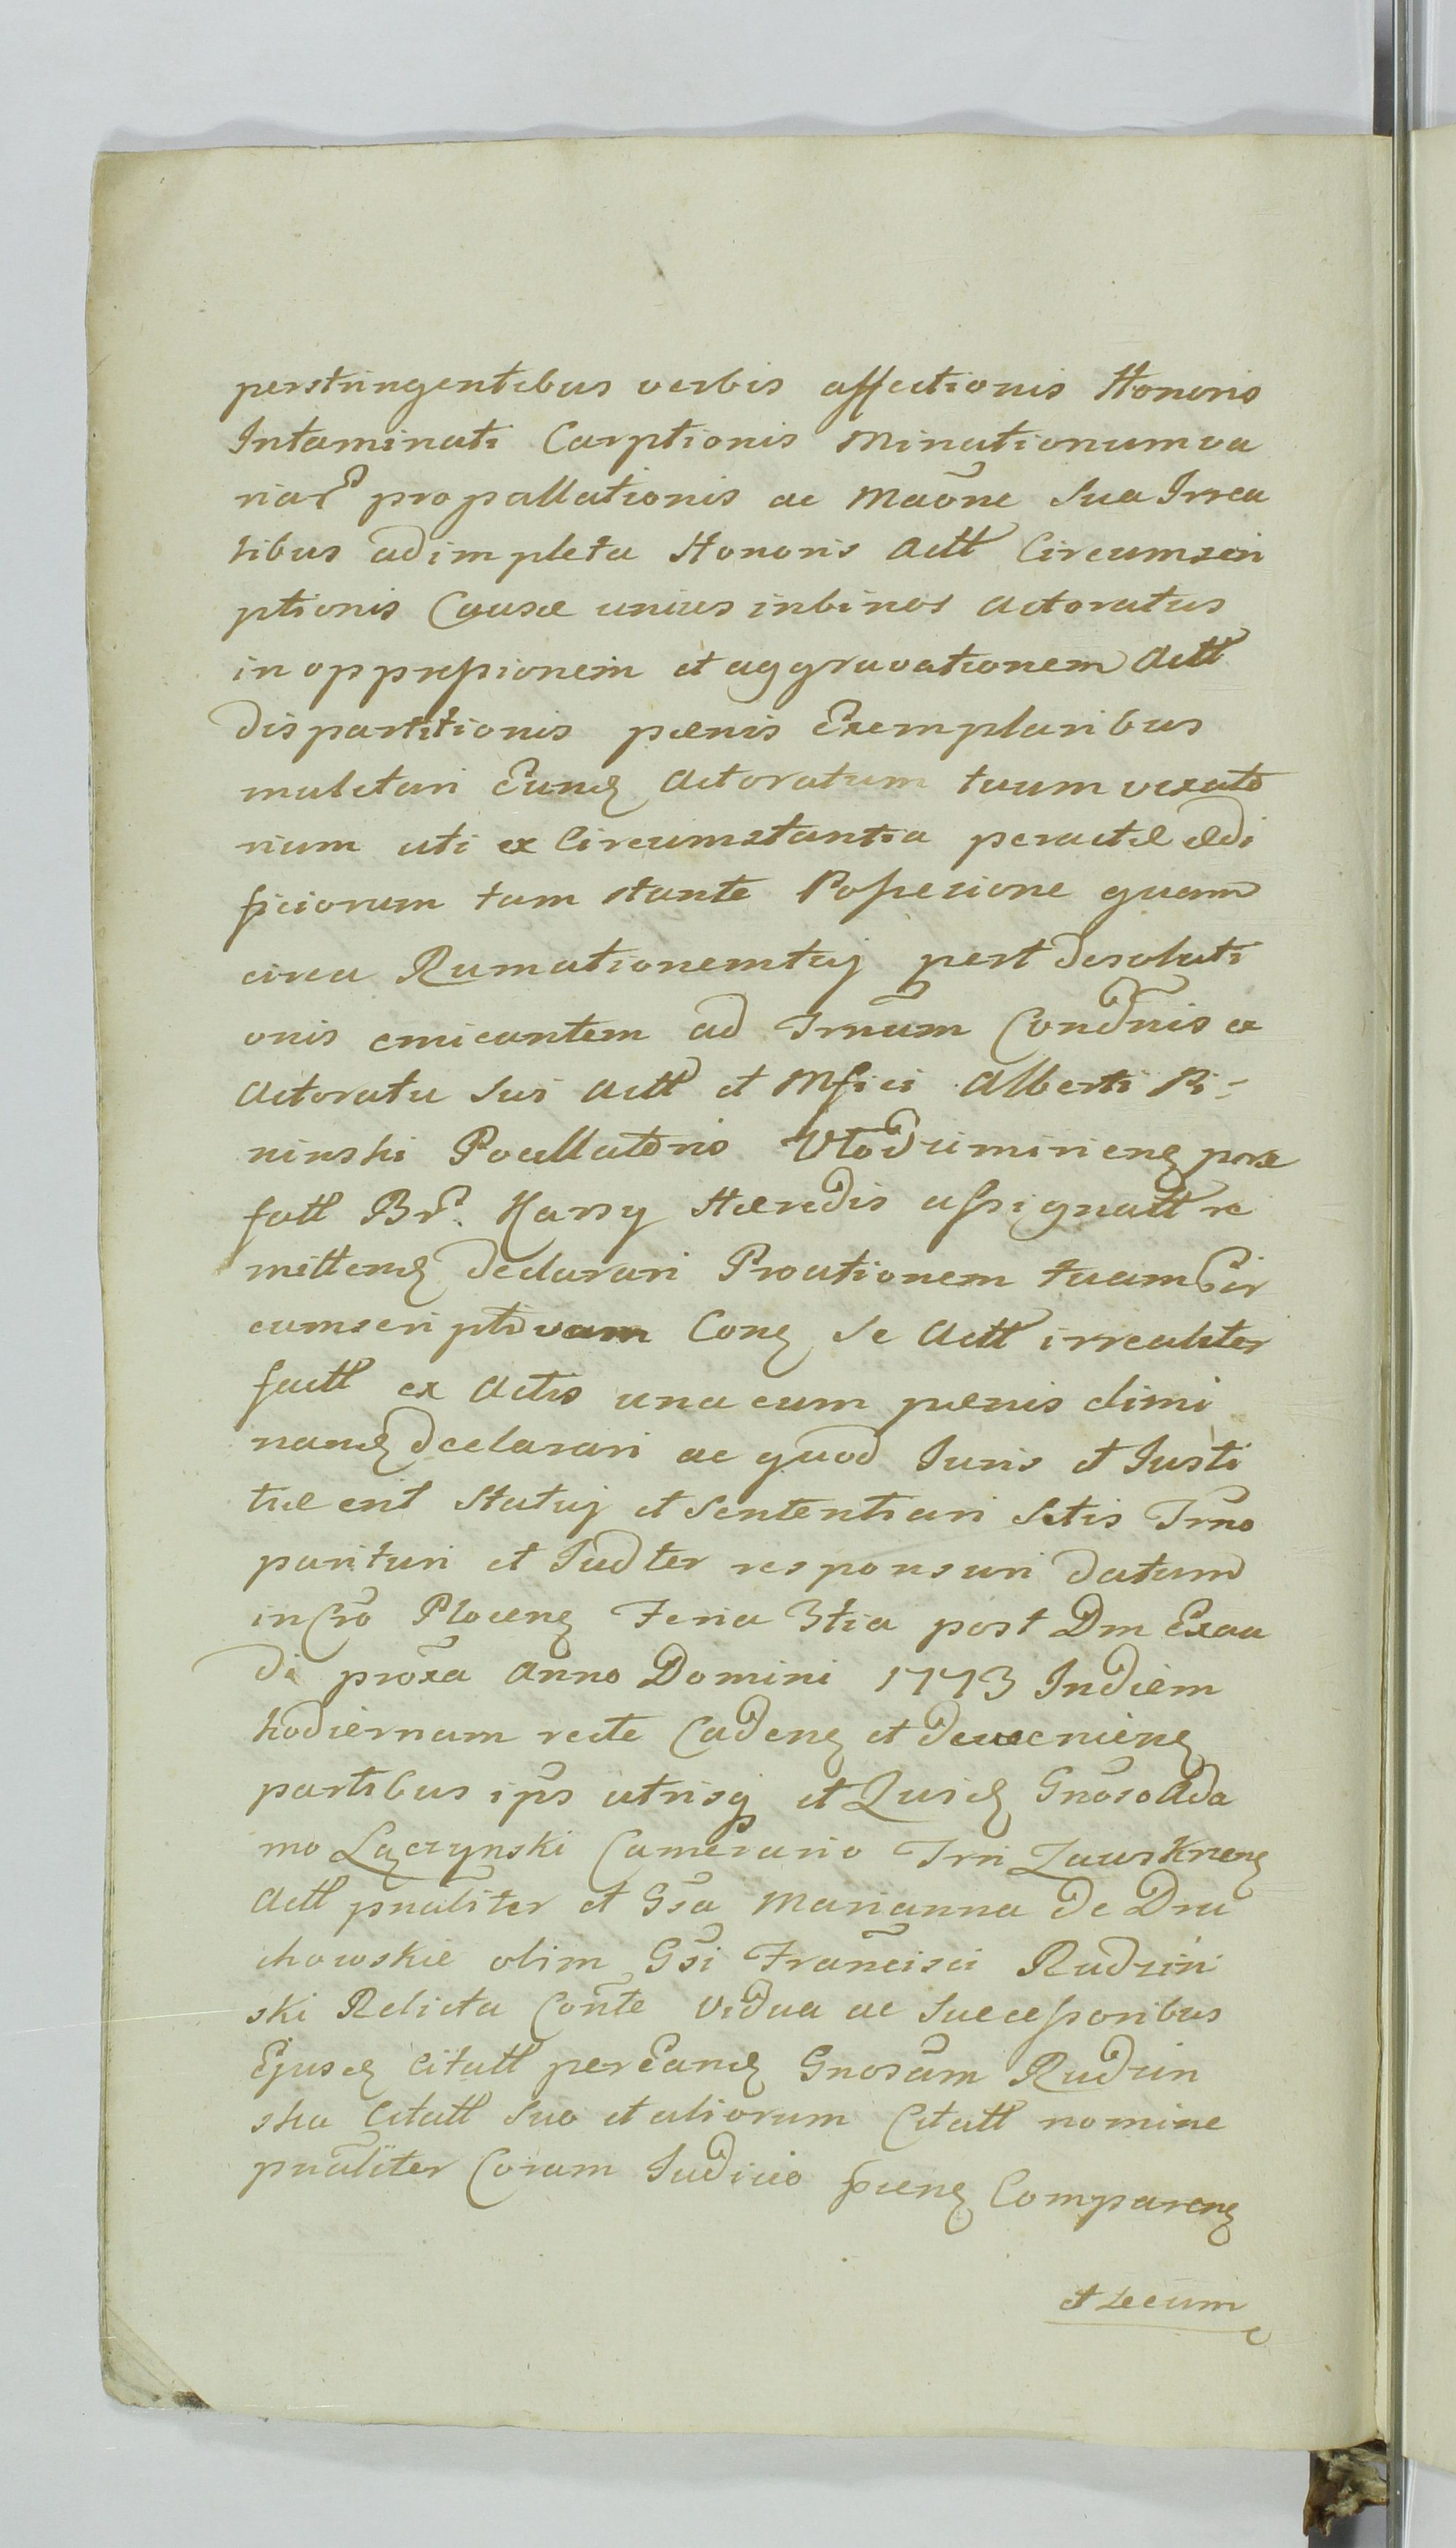 perstringentibus verbis affectionis Honoris
Intaminati Carptionis Minationumva
riar propallationis ac Maõne sua Irrea
libus adimpleta Honoris Actt Circumscri
ptionis Causæ unius inbinos Actoratus
in oppressionem et aggravationem Actt
dispartitionis pænis Exemplaribus
mulctari Eund Actoratum tuum vexato
rium uti ex Circumstantia peractæ ædi
ficiorum tam stante Possesione quam
circa Rumationemtuj post desoluti
onis emicantem ad Trnum Condnis ex
Actoratu sui Actt et Mfici Alberti Pi-
ninski Pocillatoris Włodzimiriens præ
fatt Br. Karsy Hæredis assignatt re
mittend declarari Proationem tuam Cir
cumscriptivam Con se Actt irrealiter
factt ex Actis una cum pænis elimi
nand declarari ac quod Juris et Justi
tiæ erit Statuj et Sententiari Sitis Trno
parituri et Judter responsuri datum
in Cro Plocen Feria 3tia post Dm Exau
di proxa Anno Domini 1773 Indiem
hodiernam recte Caden et devenien
partibus ips utrisq et Quid Gnoso Ada
mo Lączynski Camerario Trri Zawskrzen
Actt pnaliter et Gsa Marianna de Dru
chowskie olim Gsi Francisci Rudzin
ski Relicta Conte vidua ac Successoribus
Ejusd Citatt per Eand Gnosam Rudzin
ska Citatt suo et aliorum Citatt nomine
pnaliter Coram Judicio pnen Comparen
et secum